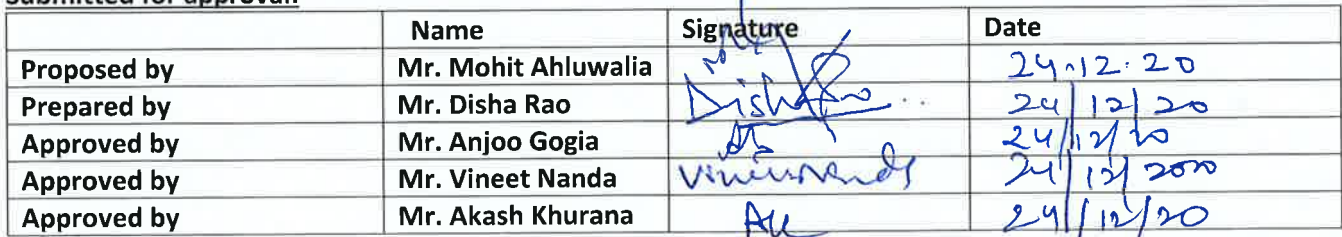 Submitted for approval:
Name Signature Date
Proposed by Mr. Mohit Ahluwalia 24.12.20
Prepared by Mr. Disha Rao DishaRao 24/12/20
Approved by Mr. Anjoo Gogia 24/12/20
Approved by Mr. Vineet Nanda Vineet Nanda 24/12/2020
Approved by Mr. Akash Khurana AK 24/12/20